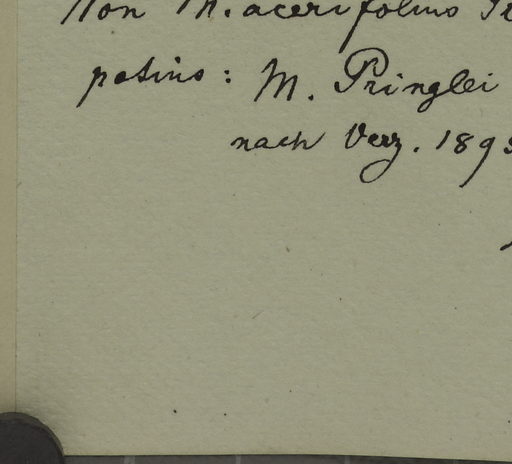 Non M. acerifolius
potius: M. Pringlei
nach Verz. 189